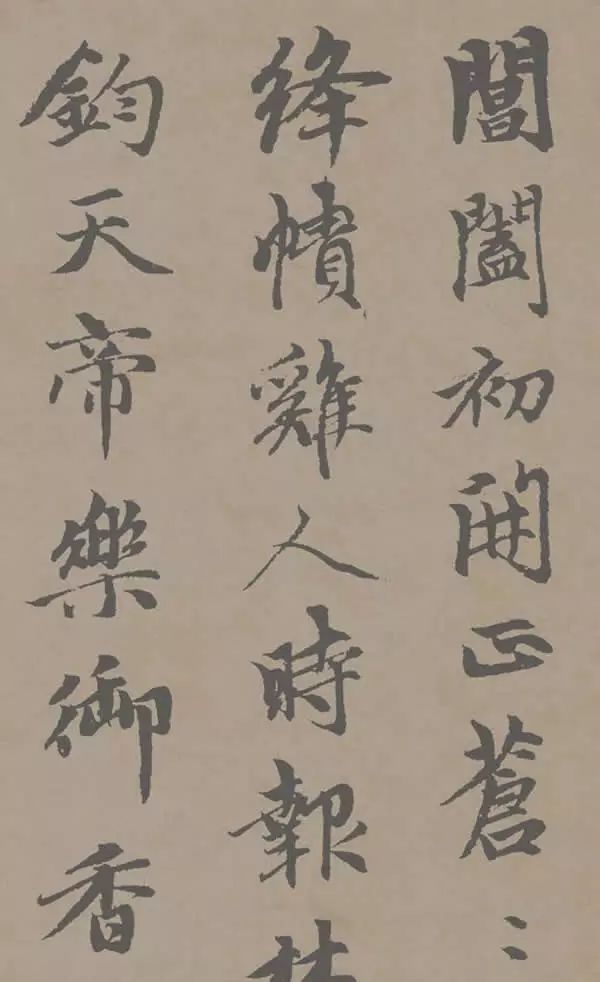 閶闔初開正蒼〻
絳幘雞人時報
鈞天帝樂御香